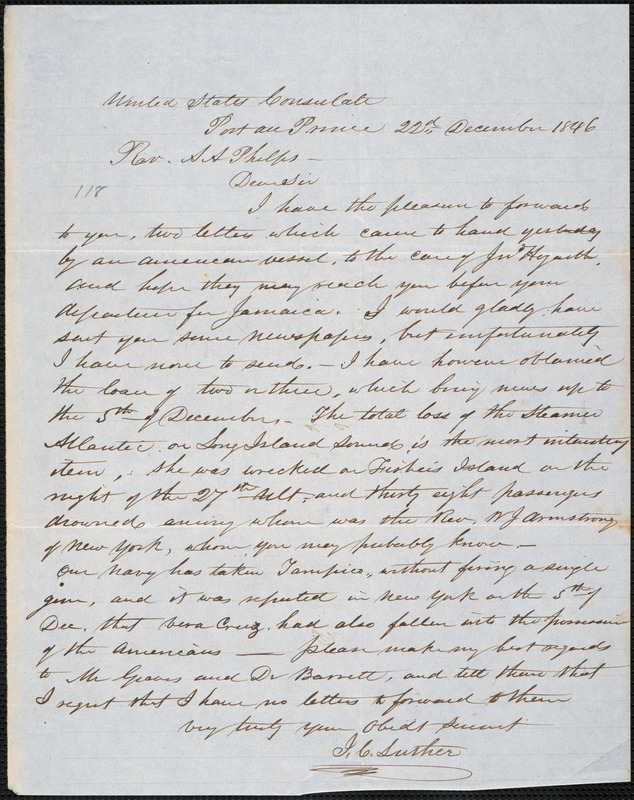 United States Consulate
Port au Prince 22d, December 1846
Rev. A A Phelps -
118
Dear Sir
I have the pleasure to forward
to you, two letters which came to hand yesterday
by an American vessel, to the care of Jno Hogarth,
and hope they may reach you before your
departure for Jamaica. I would gladly have
sent you some newspapers, but unfortunately
I have none to send. - I have however obtained
the loan of two or three, which bring news up to
the 5th of December. - The total loss of the Steamer
Atlantic on Long Island Sound, is the most interesting
item, she was wrecked on Fishers Island on the
night of the 27th ult, and thirty eight passengers
drowned among whom was the Rev. W J Armstrong
of New York, whom you may probably know. -
Our navy has taken Tampico, without firing a single
gun, and it was reported in New York on the 5th of
Dec. that Vera Cruz had also fallen into the possession
of the Americans - please make my best regards
to Mr Graves and Dr Barrett, and tell them that
I regret that I have no letters to forward to them
very truly your Obedt Servant
J. C. Luther